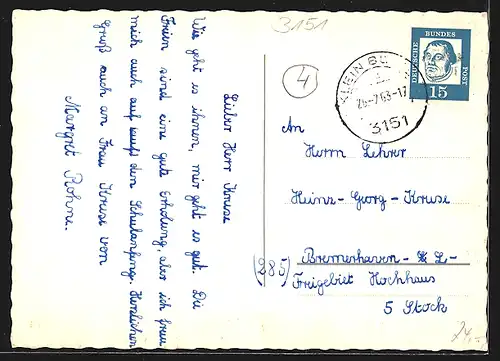 3151
4
Lieber Herr Kruse
Wie geht es ihnen, mir geht es gut. Die
Ferien sind eine gute Erholung, aber ich freue
mich auch auf den Schulanfang. Herzlichen
Gruß auch an Frau Kruse von
Margret Rohne.
DEUTSCHE BUNDES POST
15
KLEIN
-7.63-17
3151
An
Herrn Lehrer
Heinz-Georg-Kruse
(285) Bremerhaven- L-
Freigebiet Hochhaus
5 Stock